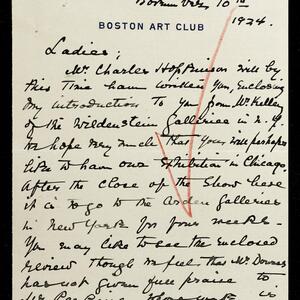 10th
BOSTON ART CLUB
1924.
Ladies;
Mr. Charles Hopkinson will by
this time have written you, enclosing
my introduction to you from Mr. Kelley
of the Wildenstein Galleries in N.Y.
We hope very much that you will perhaps
like to have our Exhibition in Chicago.
After the close of the Show here
it is to go to the Arden Galleries
in New York for four weeks.
You may like to see the enclosed
review though we feel that Mr. Downes
has not given full praise to
is